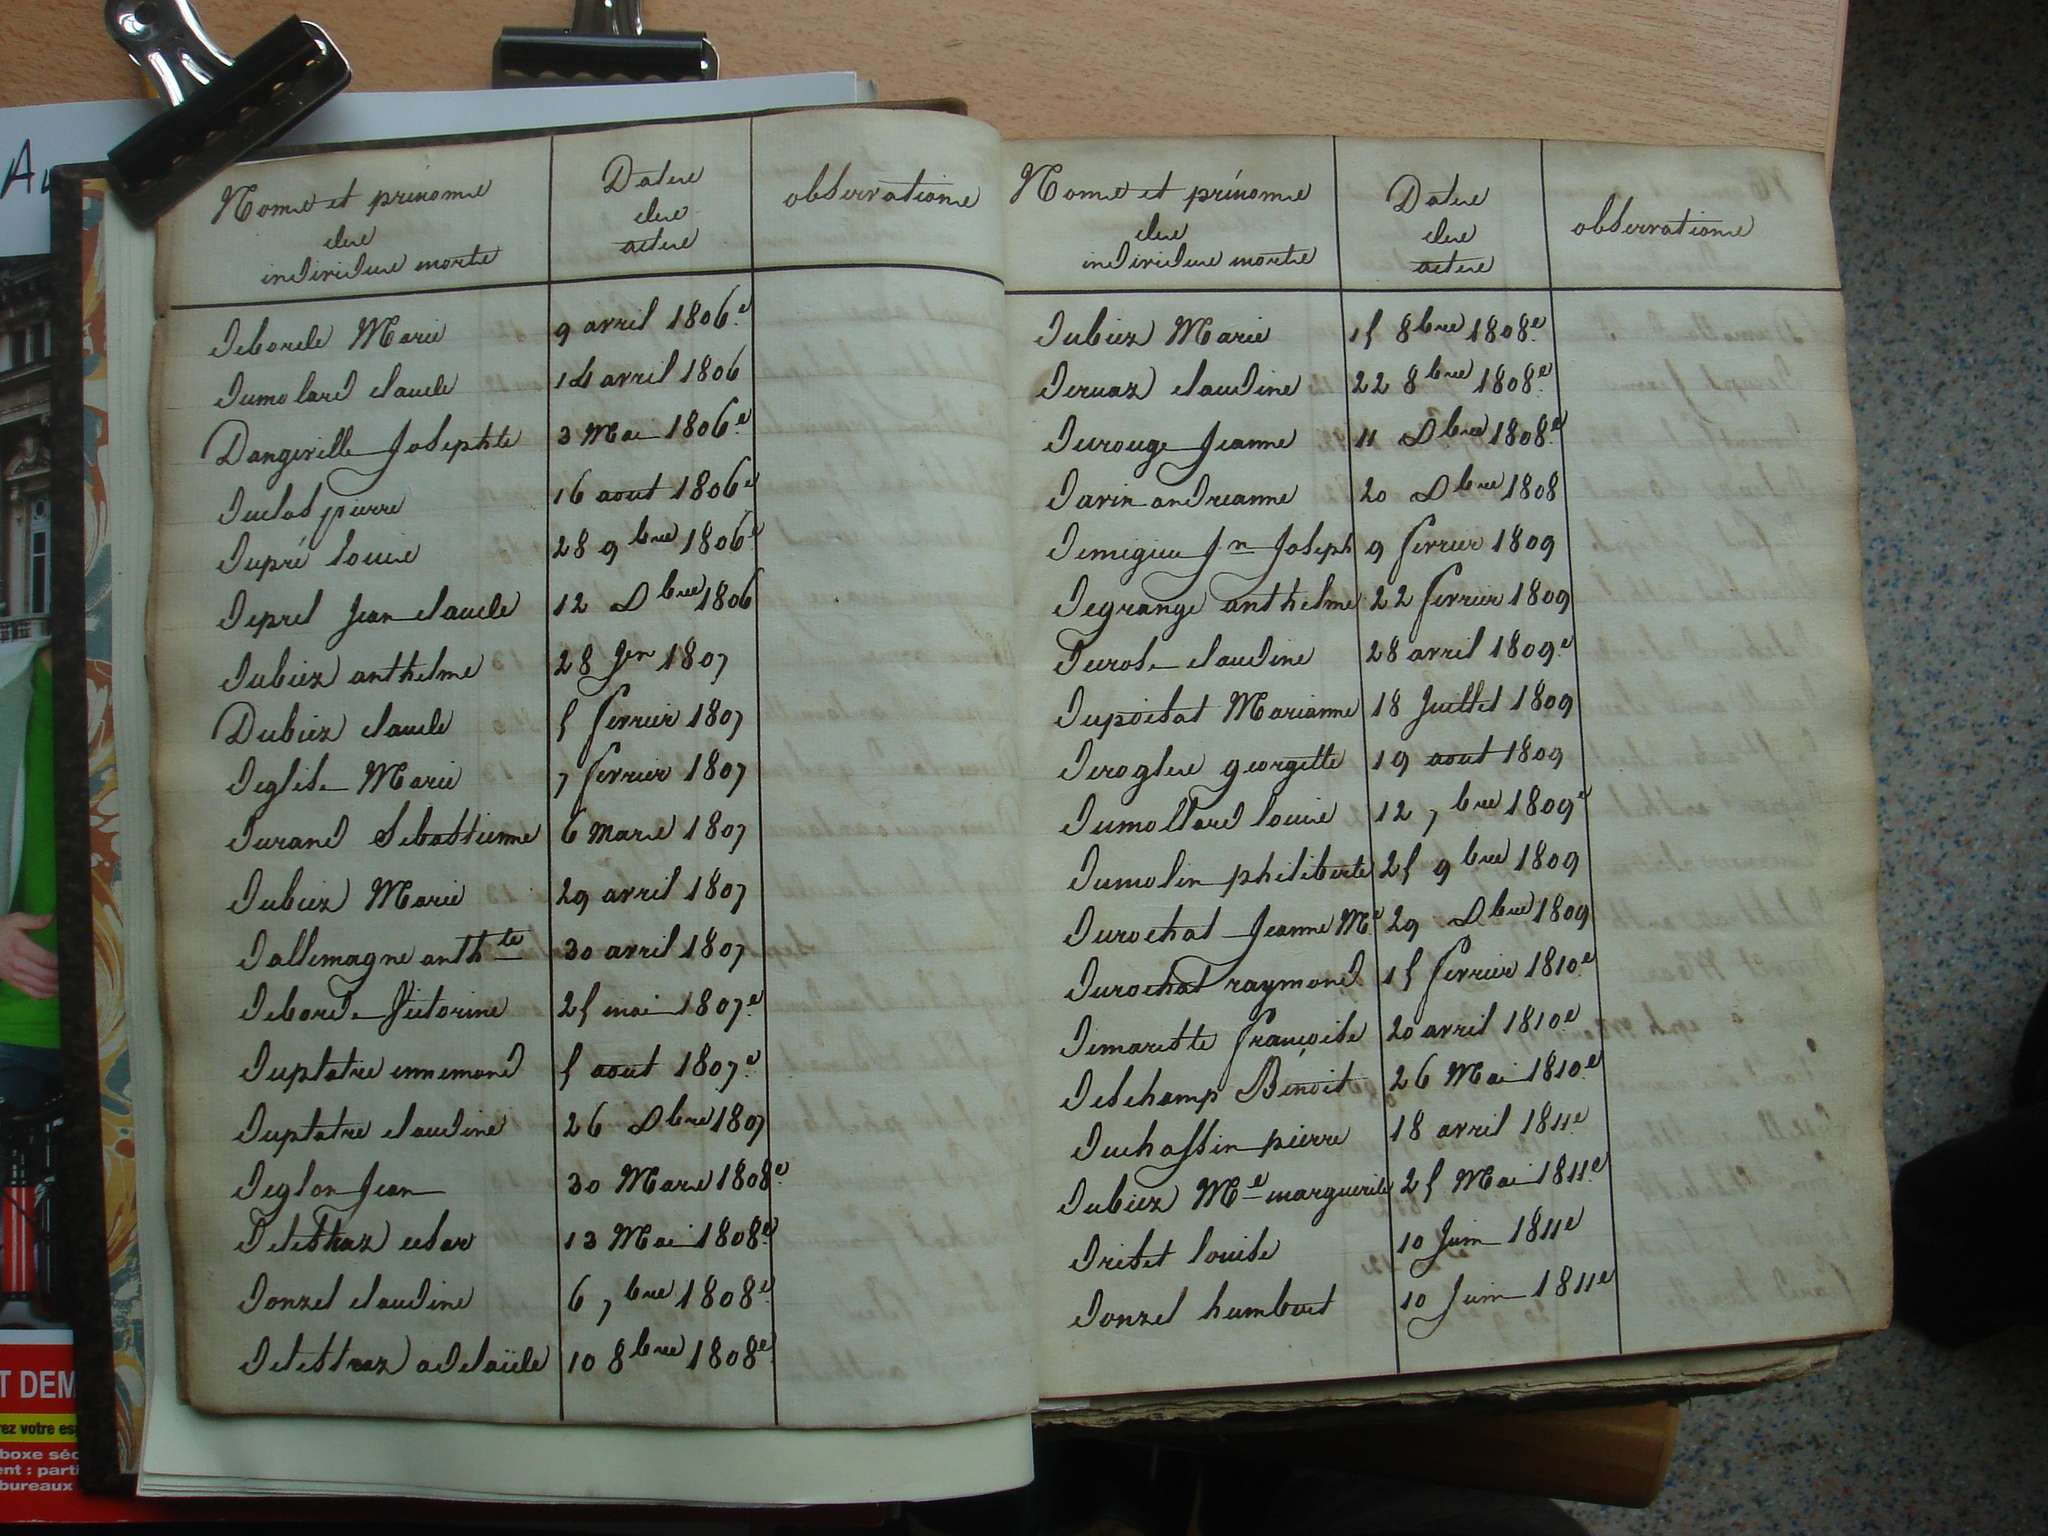 Au
Noms et prénoms
des
individus morts
Dates
des
actes
observations
deborde Marie 9 avril 1806.e
dumolard claude 14 avril 1806
Dangeville Josephte 3 Mai 1806.e
duclos pierre 16 aout 1806.e
dupré louis 28 9bre 1806.e
deprel Jean claude 12 Dbre 1806
dubiez anthelme 28 Jer 1807
Dubiez claude 5 fevrier 1807
deglise Marie 7 fevrier 1807
durand Sebastienne 6 Mars 1807
dubiez Marie 29 avril 1807
dallemagne anthte 30 avril 1807
deborde Victorine 25 mai 1807.e
duplatre ennemond 5 aout 1807.e
duplatre claudine 26 Dbre 1807
deglon Jean 30 Mars 1808.e
delestraz cesar 13 Mai 1808.e
donzel claudine 6 7bre 1808.e
delestraz adelaïde 10 8bre 1808.e
Noms et prénoms
des
individus morts
Dates
des
actes
observations
dubiez Marie 15 8bre 1808.e
dervaz claudine 22 8bre 1808.e
durouge Jeanne 11 Dbre 1808.e
davin andreanne 20 Dbre 1808
demigieu Jn Joseph 9 fevrier 1809
degrange anthelme 22 fevrier 1809
durose claudine 28 avril 1809.e
dupoisat Marianne 18 Juillet 1809
deroglese georgette 19 aout 1809
dumollard louise 12 7bre 1809.e
dumolin philiberte 25 9bre 1809
durochat Jeanne Me 29 Dbre 1809
durochat raymond 15 fevrier 1810.e
demareste françoise 20 avril 1810.e
deschamp Bénoit 26 Mai 1810.e
duchassin pierre 18 avril 1811.e
dubiez Me marguerite 25 Mai 1811.e
driset louise 10 Juin 1811.e
donzel humbert 10 Juin 1811.e
T DEM
rez votre es
boxe séc
ent : parti
bureaux